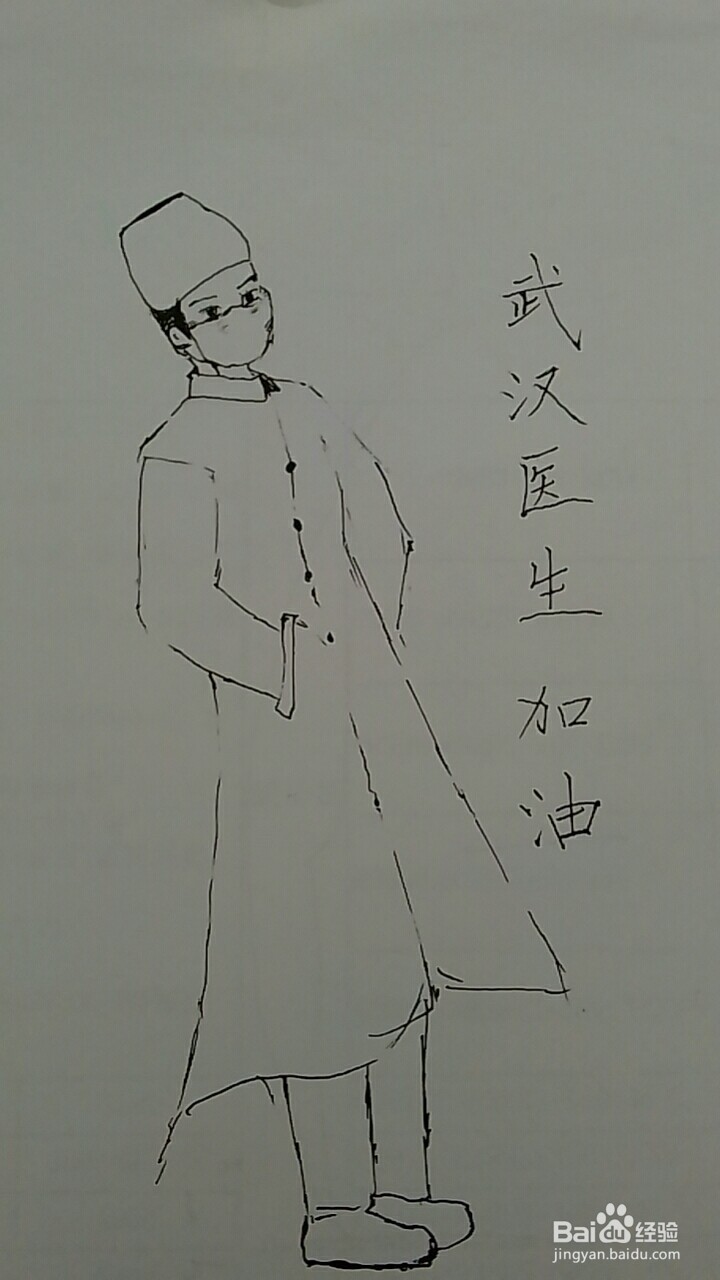 武汉医生 加油
Baidu经验
jingyan.baidu.com